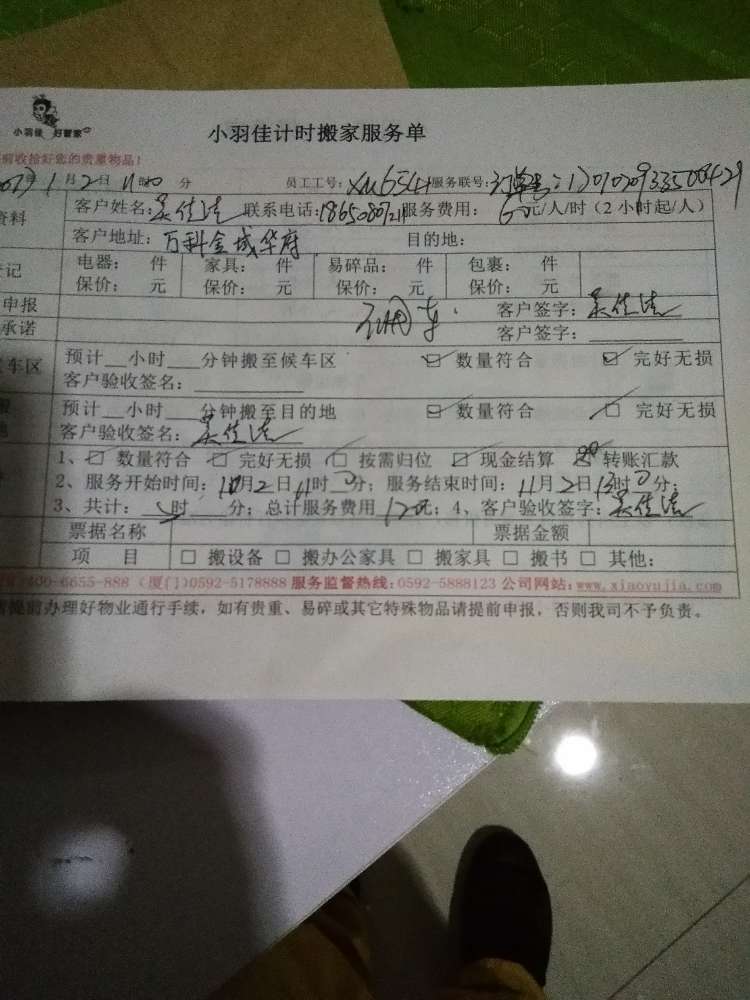 小羽佳 好管家
小羽佳计时搬家服务单
前收拾好您的贵重物品！
年1月2日11时00分 员工工号：XM6541 服务联号：订单号：
资料 客户姓名： 联系电话： 服务费用：6元/人/时（2小时起/人）
客户地址：万科金域华府 目的地：
登记 电器： 件 家具： 件 易碎品： 件 包裹： 件
保价： 元 保价： 元 保价： 元 保价： 元
申报 不用车 客户签字：
承诺 客户签字：
车区 预计__小时__分钟搬至候车区 数量符合 完好无损
客户验收签名：
预计__小时__分钟搬至目的地 数量符合 完好无损
地 客户验收签名：
1、 数量符合 完好无损 按需归位 现金结算 转账汇款
2、服务开始时间： 月2日11时0分；服务结束时间：11月2日13时0分；
3、共计： 时 分；总计服务费用12元；4、客户验收签字：
票据名称 票据金额
项 目 □ 搬设备 □ 搬办公家具 □ 搬家具 □ 搬书 □ 其他：
400-6655-888（厦门）0592-5178888 服务监督热线：0592-5888123 公司网站：www.xiaoyujia.com
提前办理好物业通行手续，如有贵重、易碎或其它特殊物品请提前申报，否则我司不予负责。